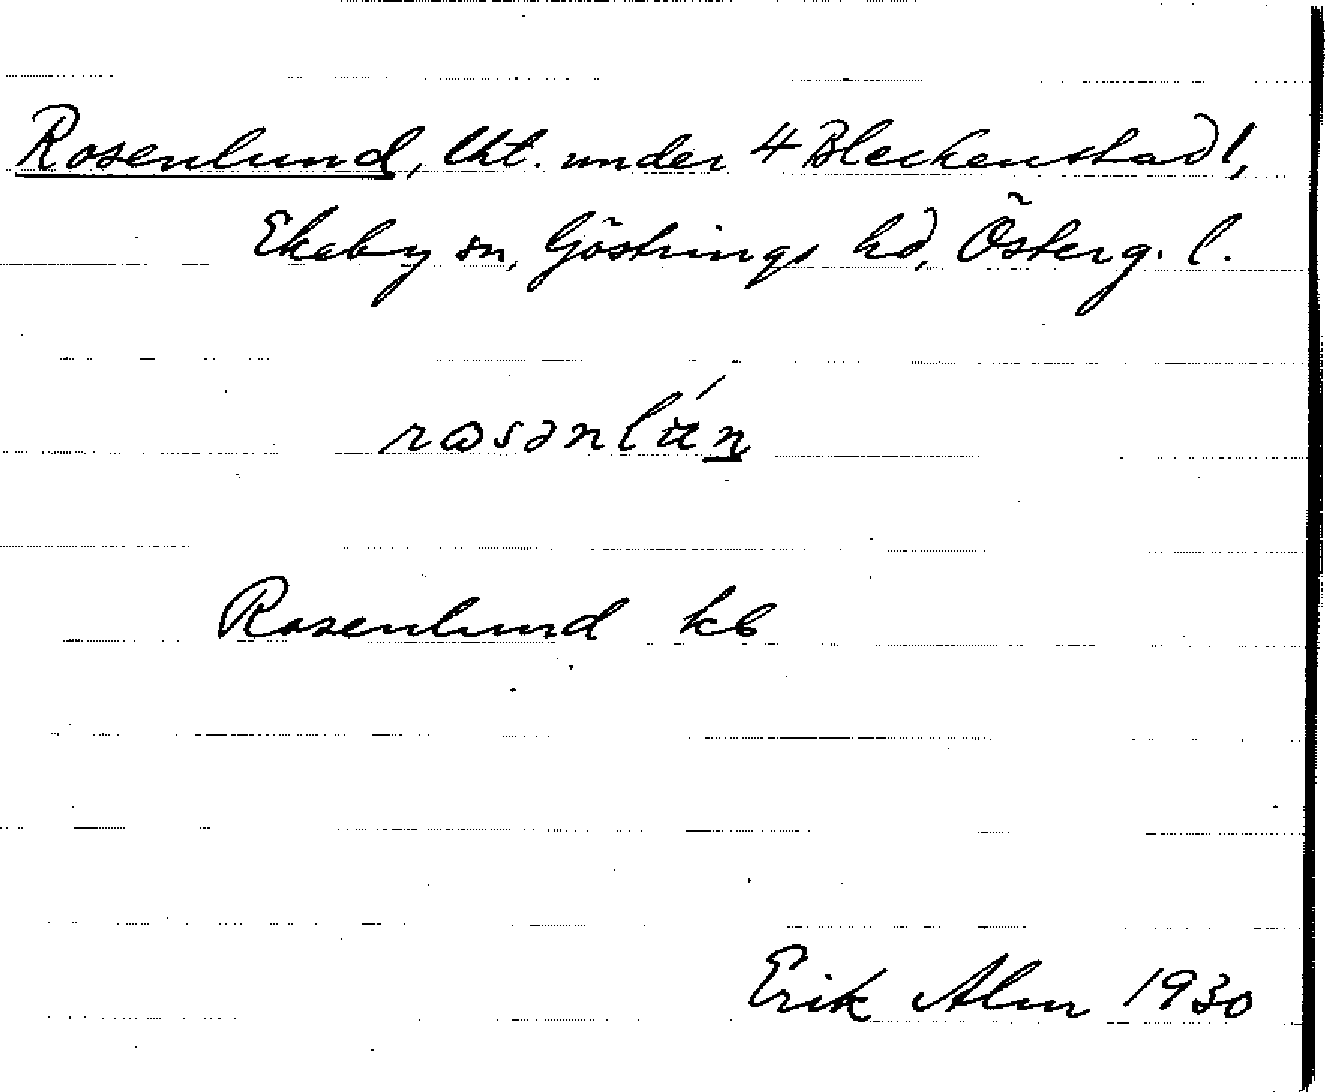 Rosenlund, lht. under 4 Bleckenstad 1,
Ekeby sn, Göstrings hd, Österg. l.
Rosenlund kb
Erik Alm 1930